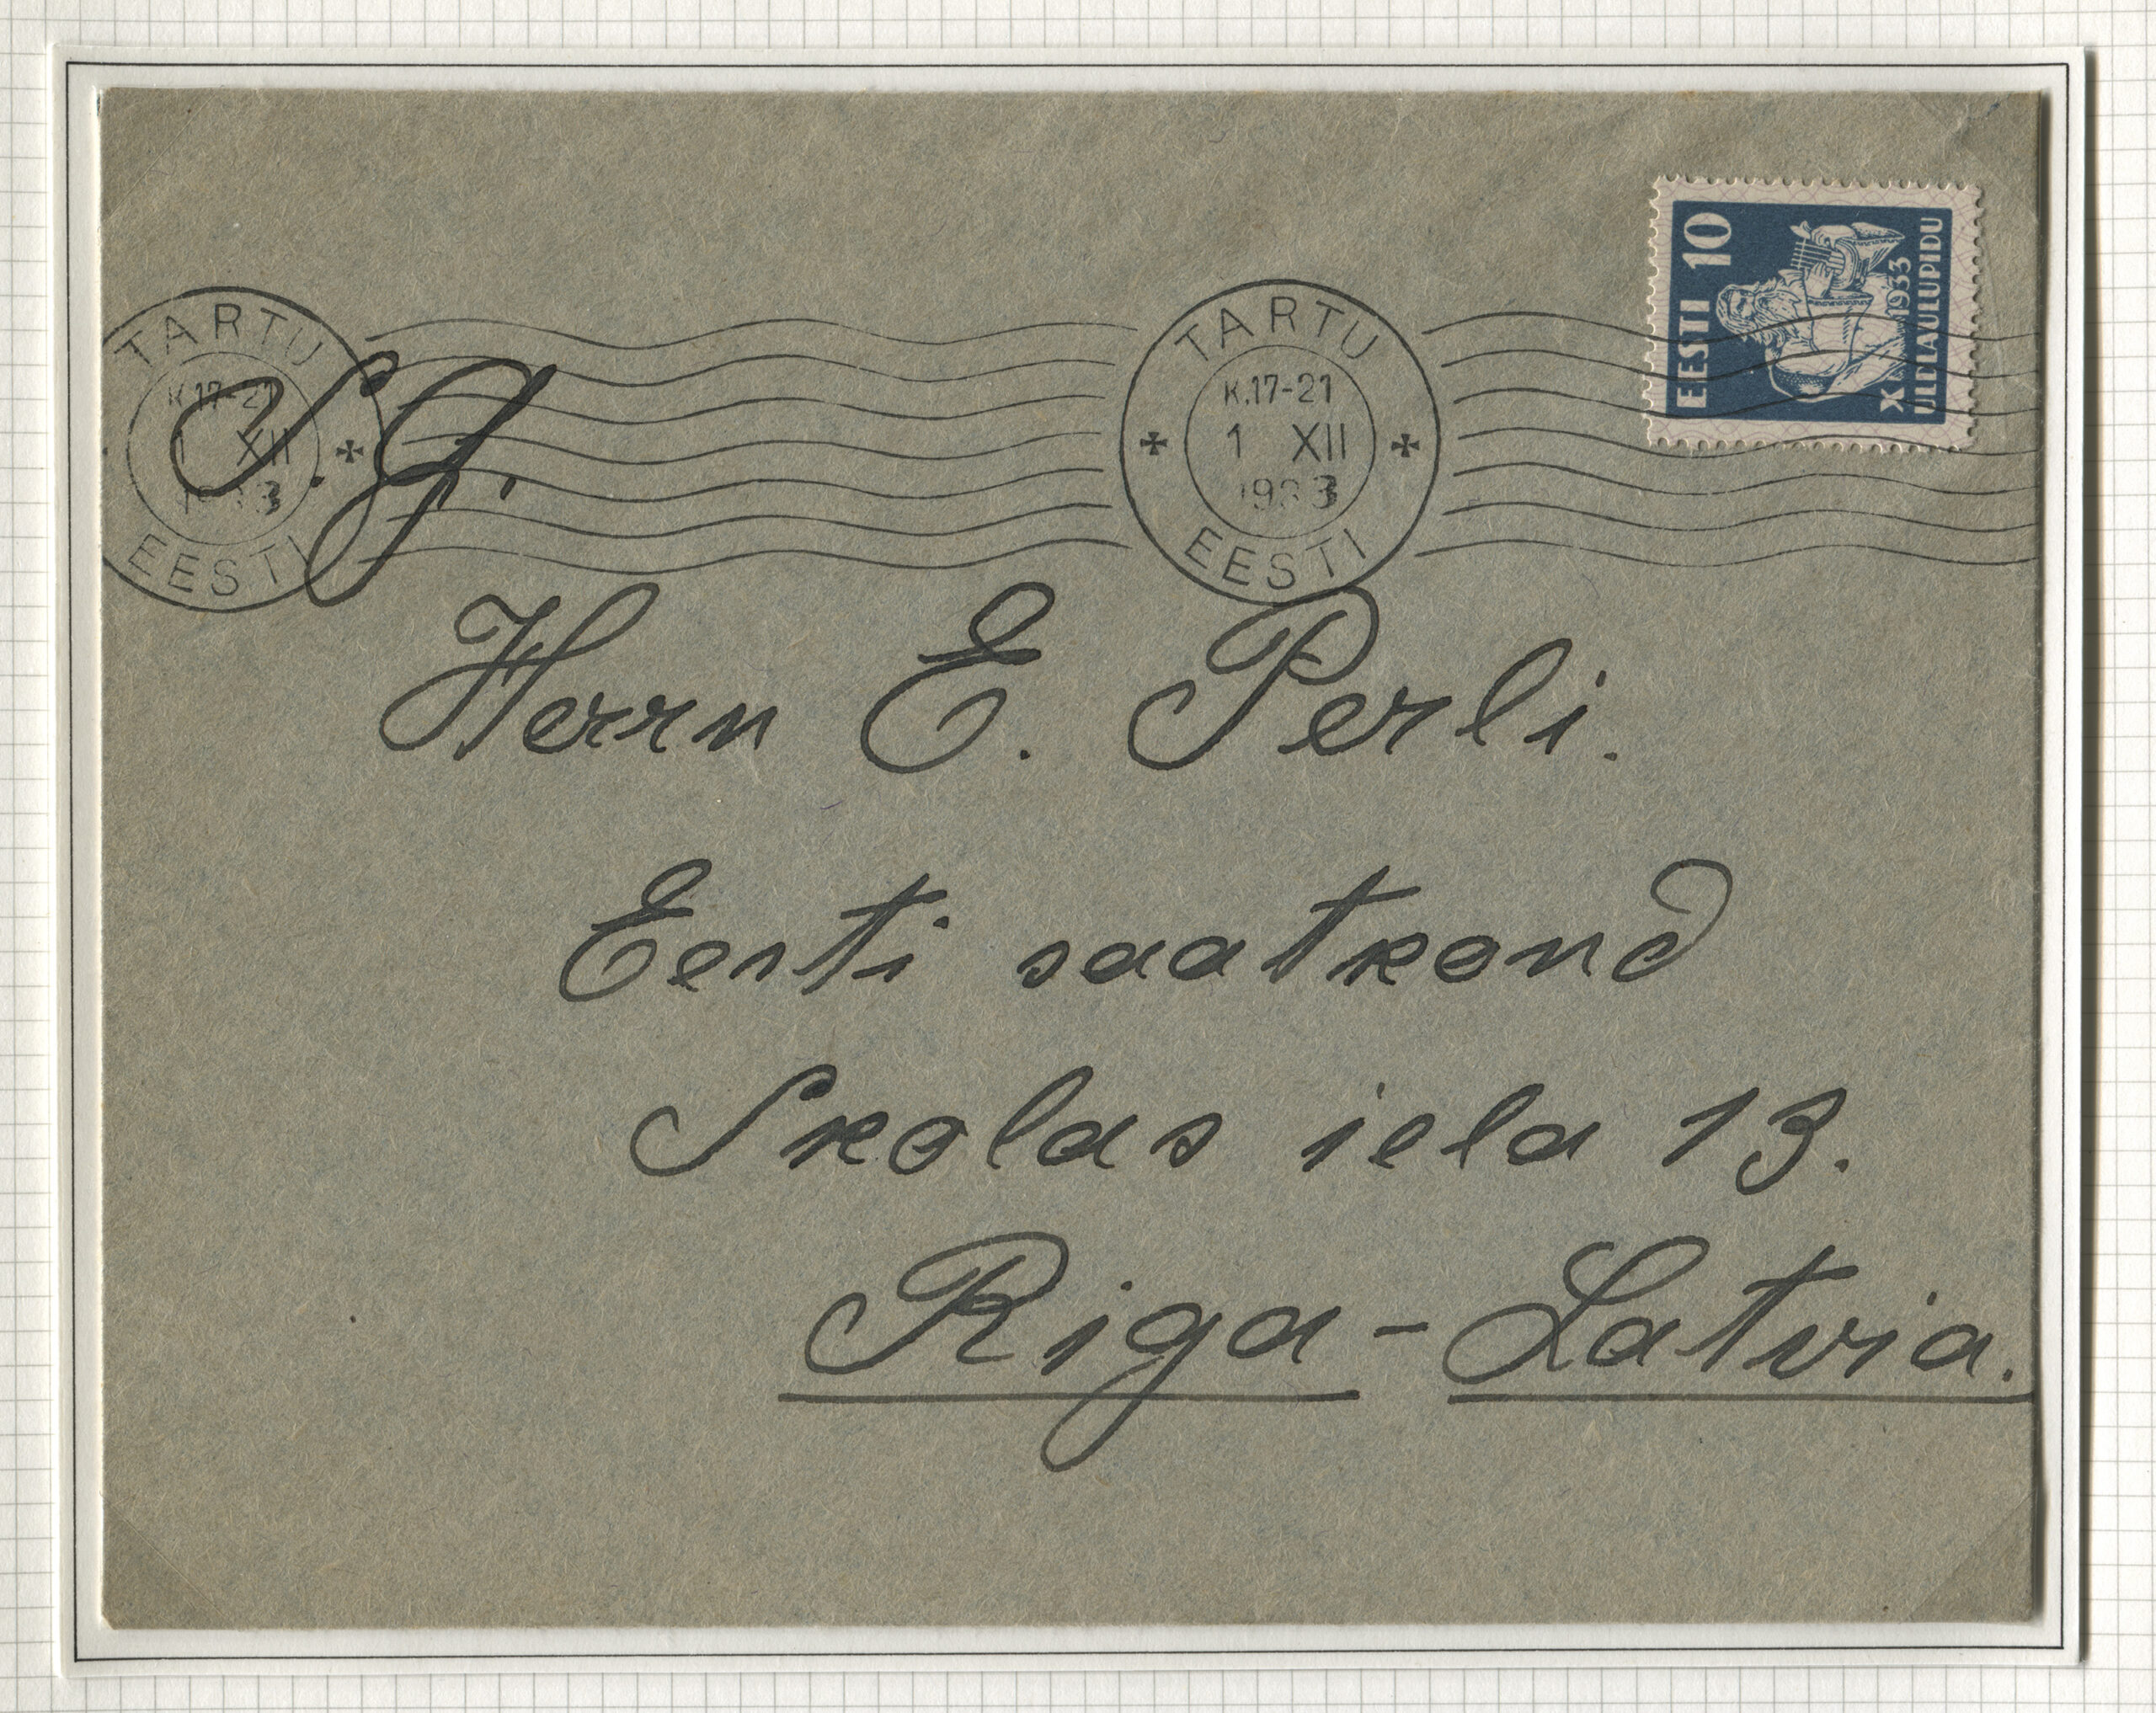 EESTI 10
1933
ÜLDLAULUPIDU
TARTU
K.17-21
1 XII
1933
EESTI
TARTU
K.17-21
1 XII
EESTI
S. g.
Herrn E. Perli.
Eesti saatkond
Skolas iela 13.
Riga - Latvia.